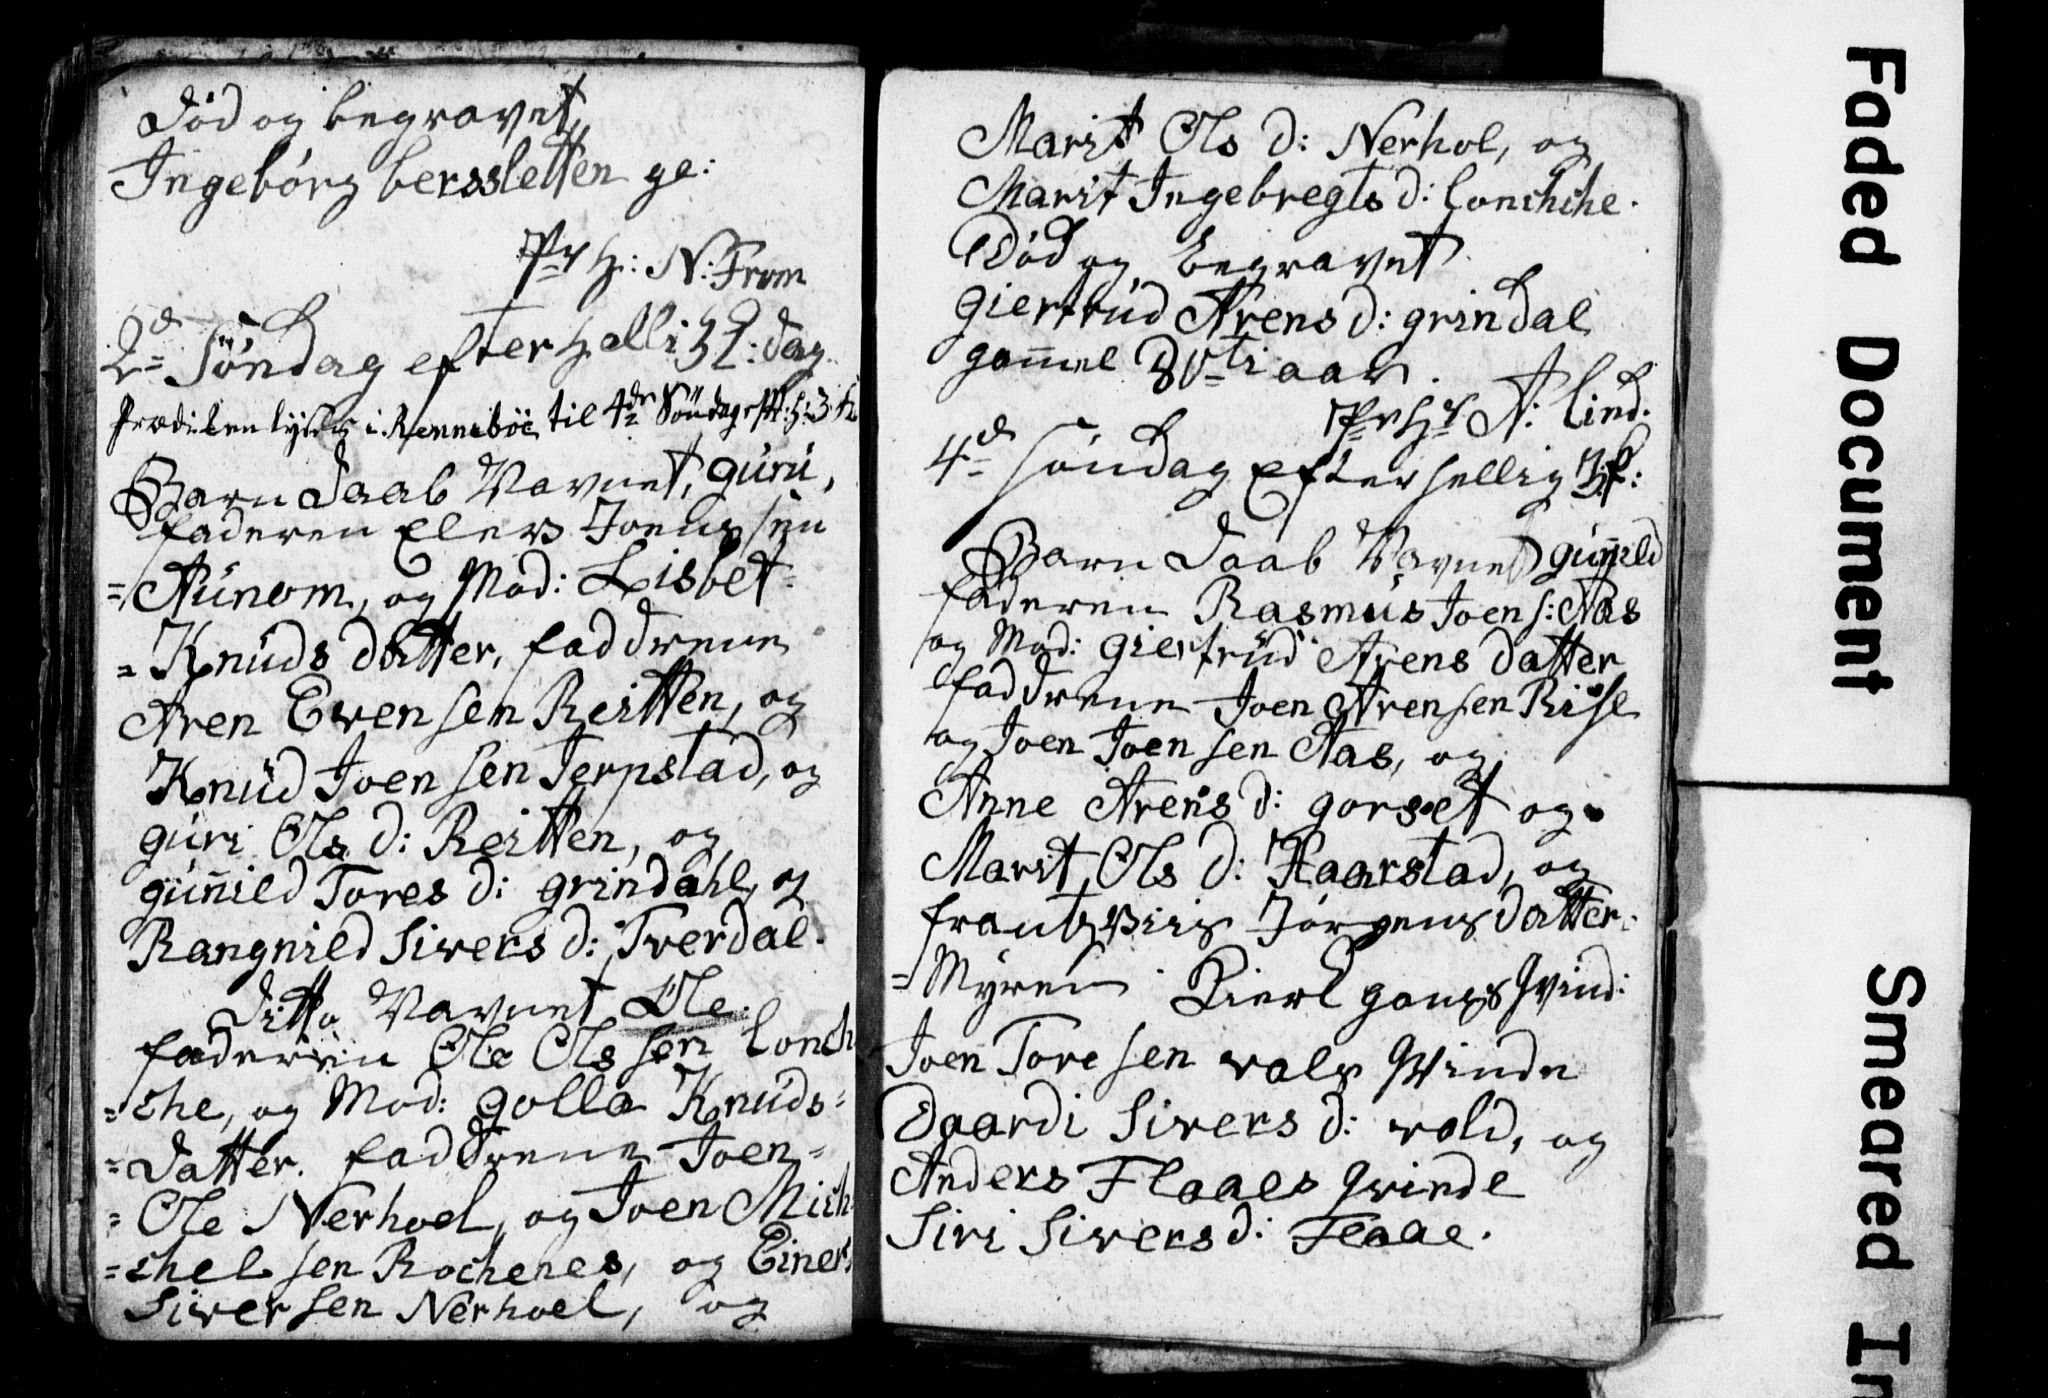 Død og begravet,
Ingebórg berssletten ge:
Pr H: N: From
2d Søndag efter Helli 3 K: dag
Prædiken lyses i Renneböe til 4de Söndag eft: H: 3 K:
Barn Daab Navnet, guru,
faderen Elers Joensen
=Aúnom, og Mod: Lisbet=
=Knúds datter, faddrene
Aren Evensen Reitten, og
Knúd Joensen Jerpstad, og
gúri Ols d: Reitten, og
gúnild Tores d: grindahl, og
Rangnild Sivers d: Tverdal.
Ditto Navnet Ole.
faderen Ole Olssen Lonch
=che, og Mod: golla Knúds=
=datter. faddrene Joen=
=Ole Nerhoel, og Joen Mich
=chelsen Rochenes, og Einers
Siversen Nerhoel, og
Marit Ols d: Nerhol, og
Marit Ingebregts d: Lonchche.
Død og begravet
giertrúd Arens d: grindal
gamel 80ti aar.
Pr Hr A: Lind.
4d Søndag Efter Hellig 3 K:
Barn Daab Navnet gúnild
faderen Rasmús Joens: Aas
og Mod: giertrúd Arens datter
faddrene Joen Arensen Rise
og Joen Joensen Aas, og
Anne Arens d: gorset og
Marit Ols d: Haarstad, og
frantz Niis Jørgens datter.
=Myren Kierk gangs qvind:
Joen Toresen vals qvinde
Daardi Sivers d: vold, og
Anders Flaaes qvinde
Siri Sivers d: Flaae.
Faded Document
Smeared In